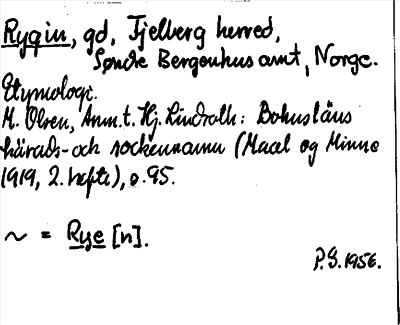 Rygin, gd, Fjelberg herred,
Søndre Bergenhus amt, Norge.
Etymologi.
M. Olsen, Anm. t. Hj. Lindroth: Bohusläns
härads- och sockennamn (Maal og Minne
1919, 2. hefte), s. 95.
~ = Rye [n].
P.G. 1956.